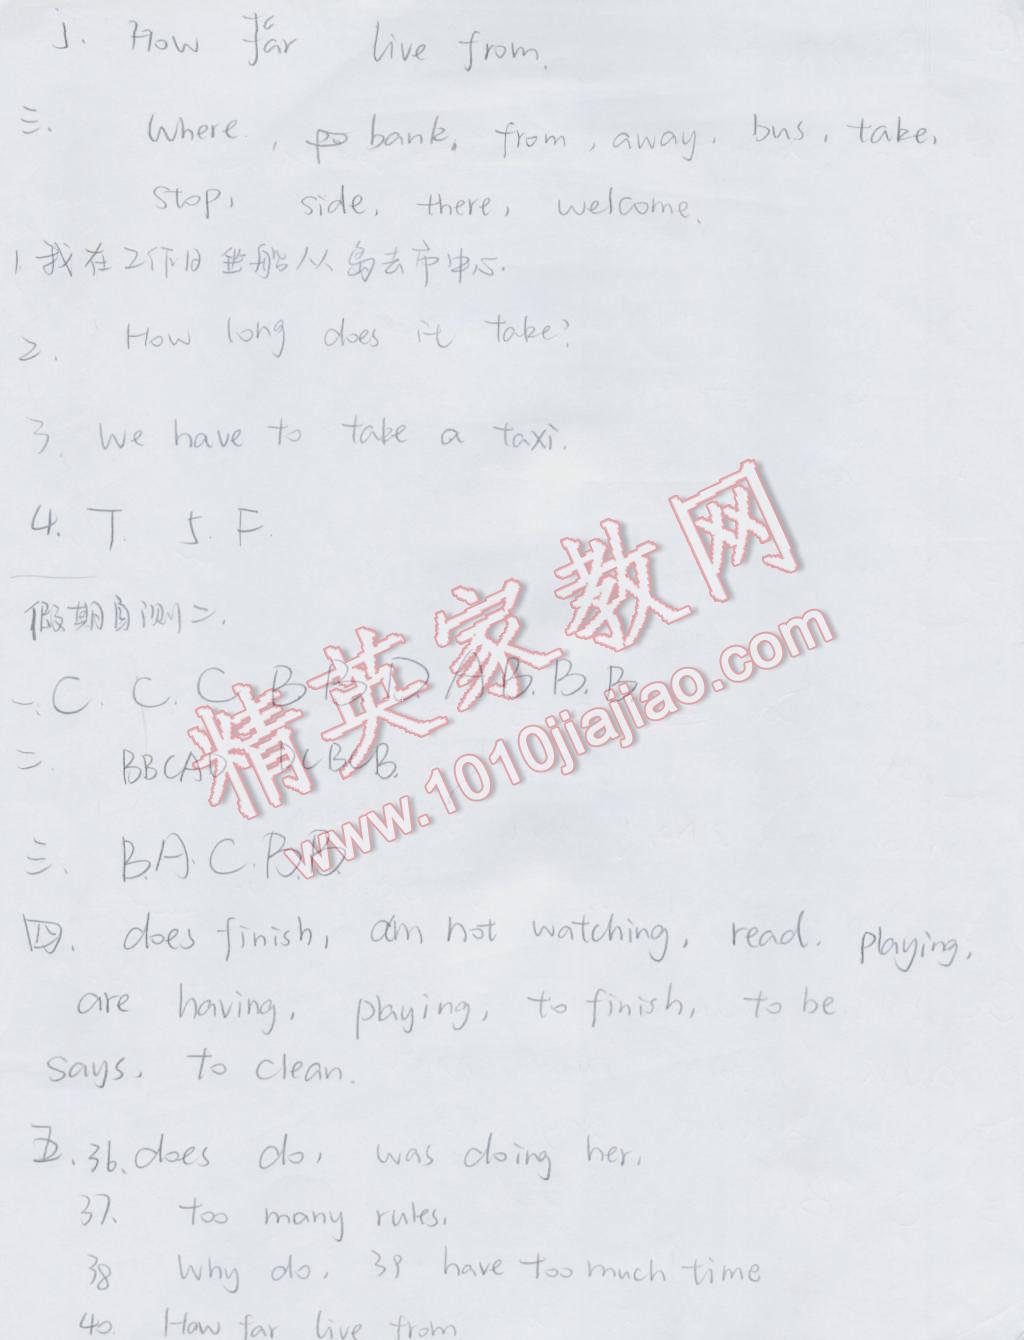 5. How far live from.
三. Where, bank, from, away, bus, take,
stop, side, there, welcome.
1. 我在工作日坐船从岛去市中心.
2. How long does it take?
3. We have to take a taxi.
4. T. 5. F.
假期自测二.
一. C. C. C. B B D A B. B. B
二. BBCAD DCBCB.
三. B.A.C.B.B.
四. does finish, am not watching, read. playing,
are having, playing, to finish, to be
says, to clean.
五. 36. does do, was doing her,
37. too many rules.
38 Why do. 39 have too much time
40. How far live from
精英家教网
www.1010jiajiao.com